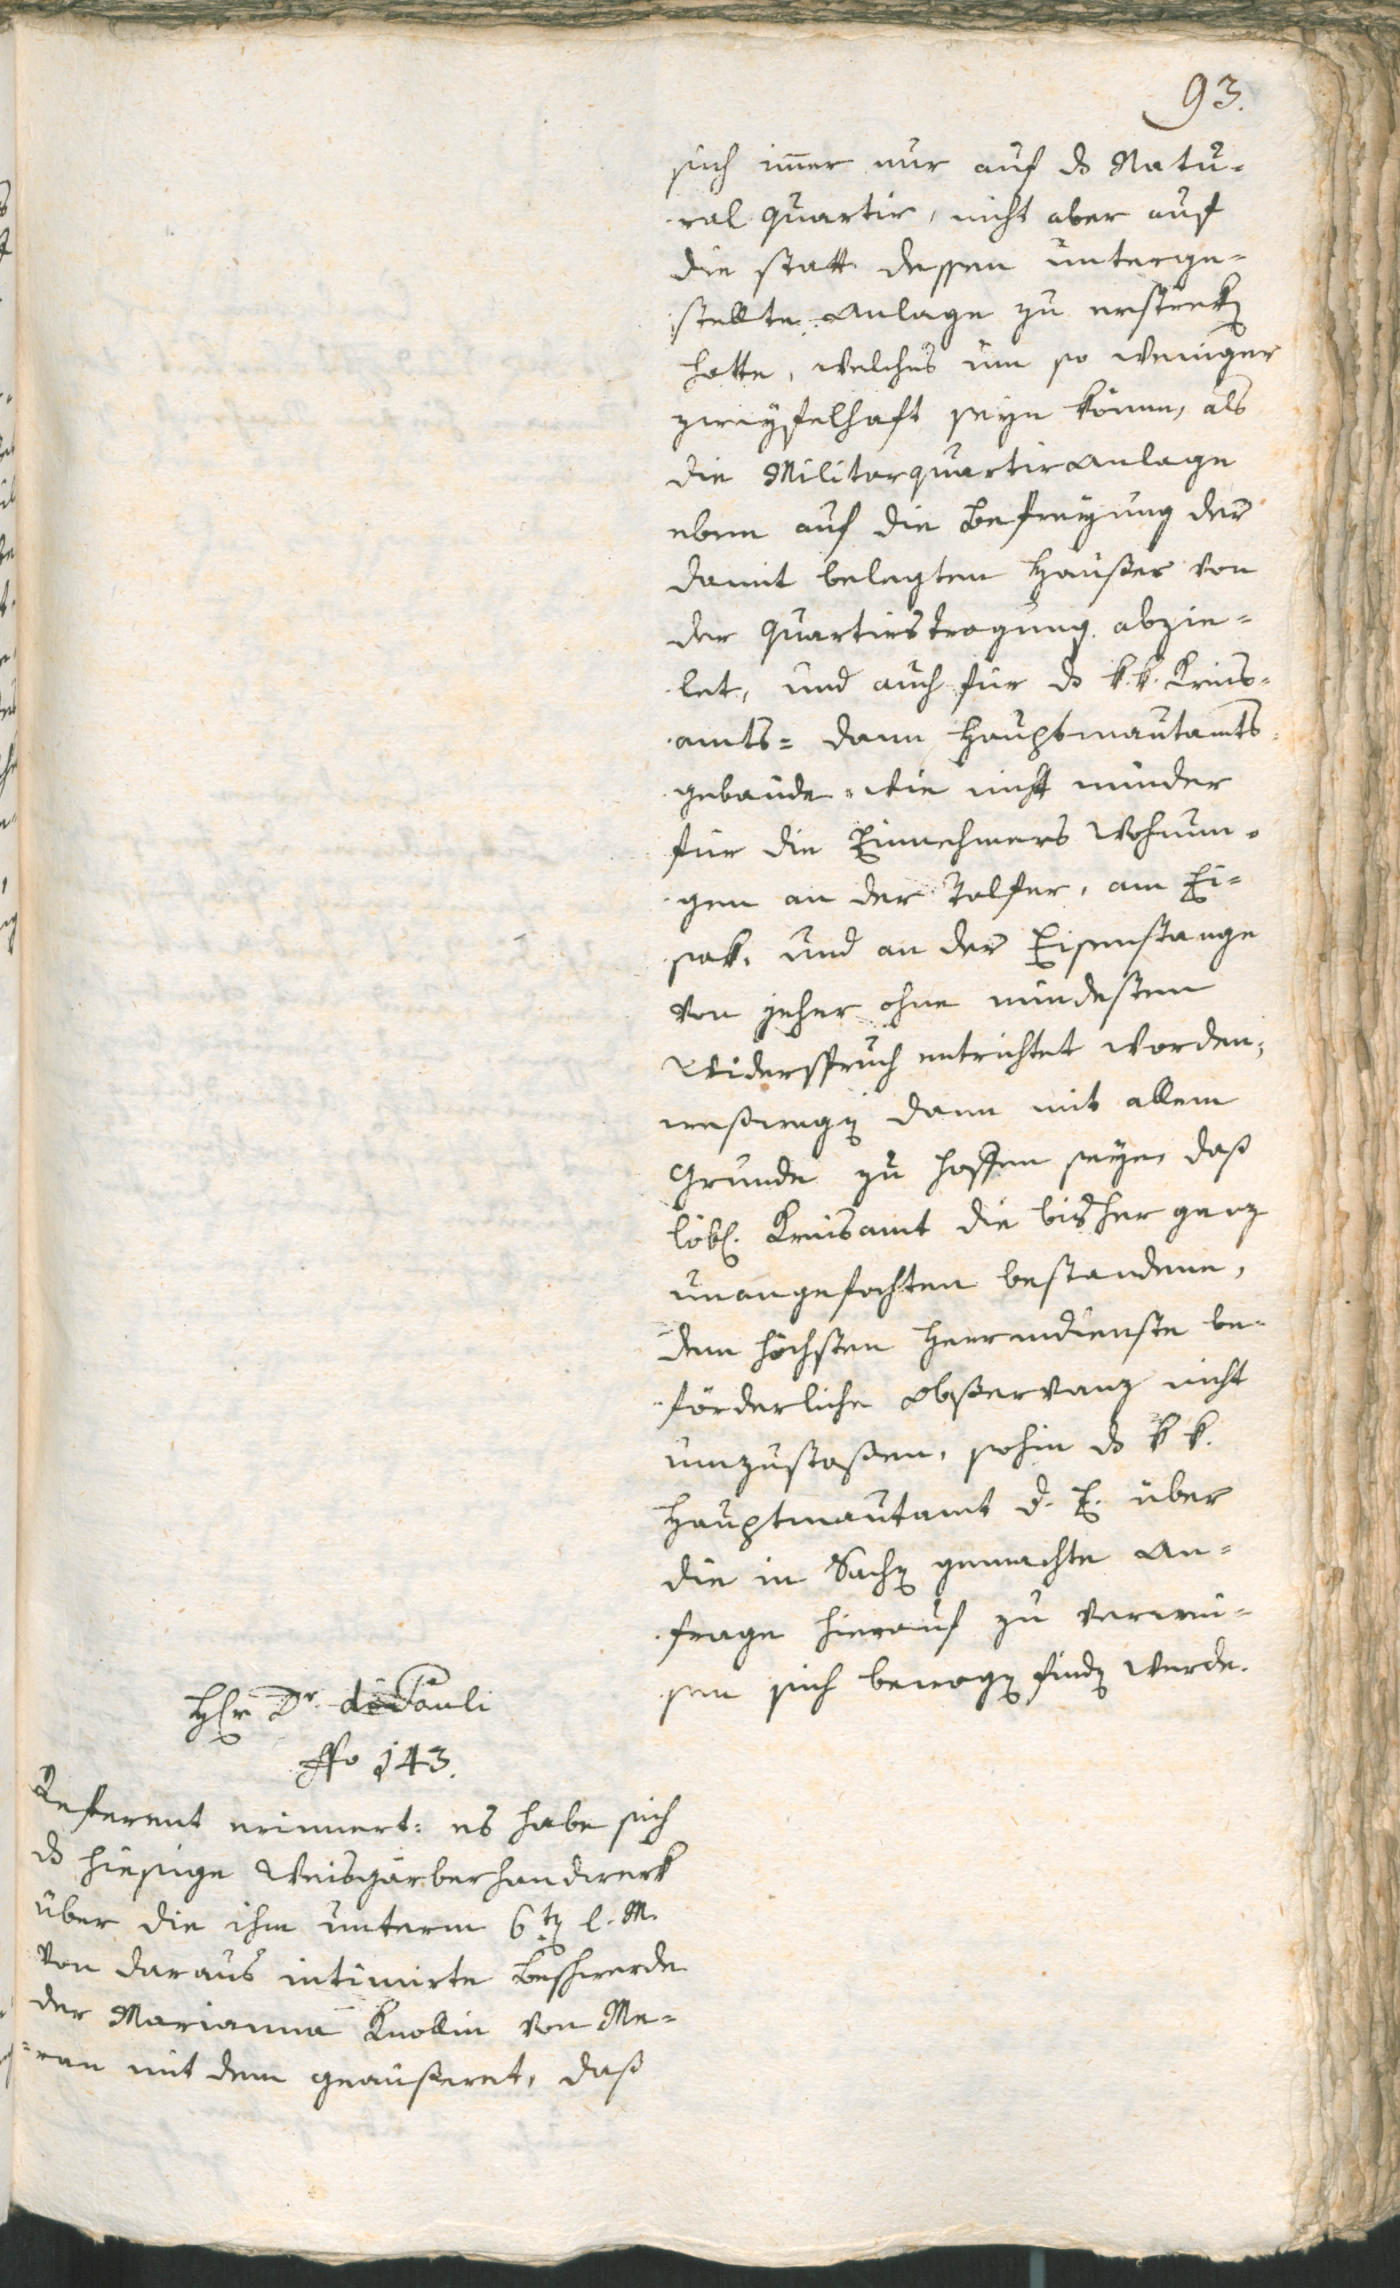 93.
sich im̄er nur auf ds Natu-
ral quartir, nicht aber auf
die statt dessen unterge-
stellte Anlage zu erstrek
hatte, welches um so weniger
zweifelhaft seyn könne, als
die Militarquartiranlage
eben auf die Befreyung der
damit belegten Häußer von
der Quartirstragung abzie-
let, und auch für ds k. k. Kreis-
amts= dann Hauptmautamts-
gebäude, wie nicht minder
für die Einnehmers Wohnun-
gen an der Talfer, am Ei-
sak, und an der Eisenstange
von jeher ohne mindesten
Widerspruch entrichtet worden;
weßweg dann mit allem
Grunde zu hoffen seye, daß
löbl. Kreisamt die bisher ganz
unangefochten bestandene,
dem höchsten Herrendienste be-
förderliche Obßervanz nicht
umzustoßen, sohin ds k k.
Hauptmautamt d. E. über
die in Sach gemachte An-
frage hierauf zu verwei-
sen sich bewog find werde.
Hr Dr. di Pauli
No 143.
Referent erinnert: es habe sich
ds hiesige Weisgärberhandwerk
über die ihm unterm 6t l. M.
von daraus intimirte Beschwerde
der Marianna Knollin von Me-
ran mit dem geäußeret, daß